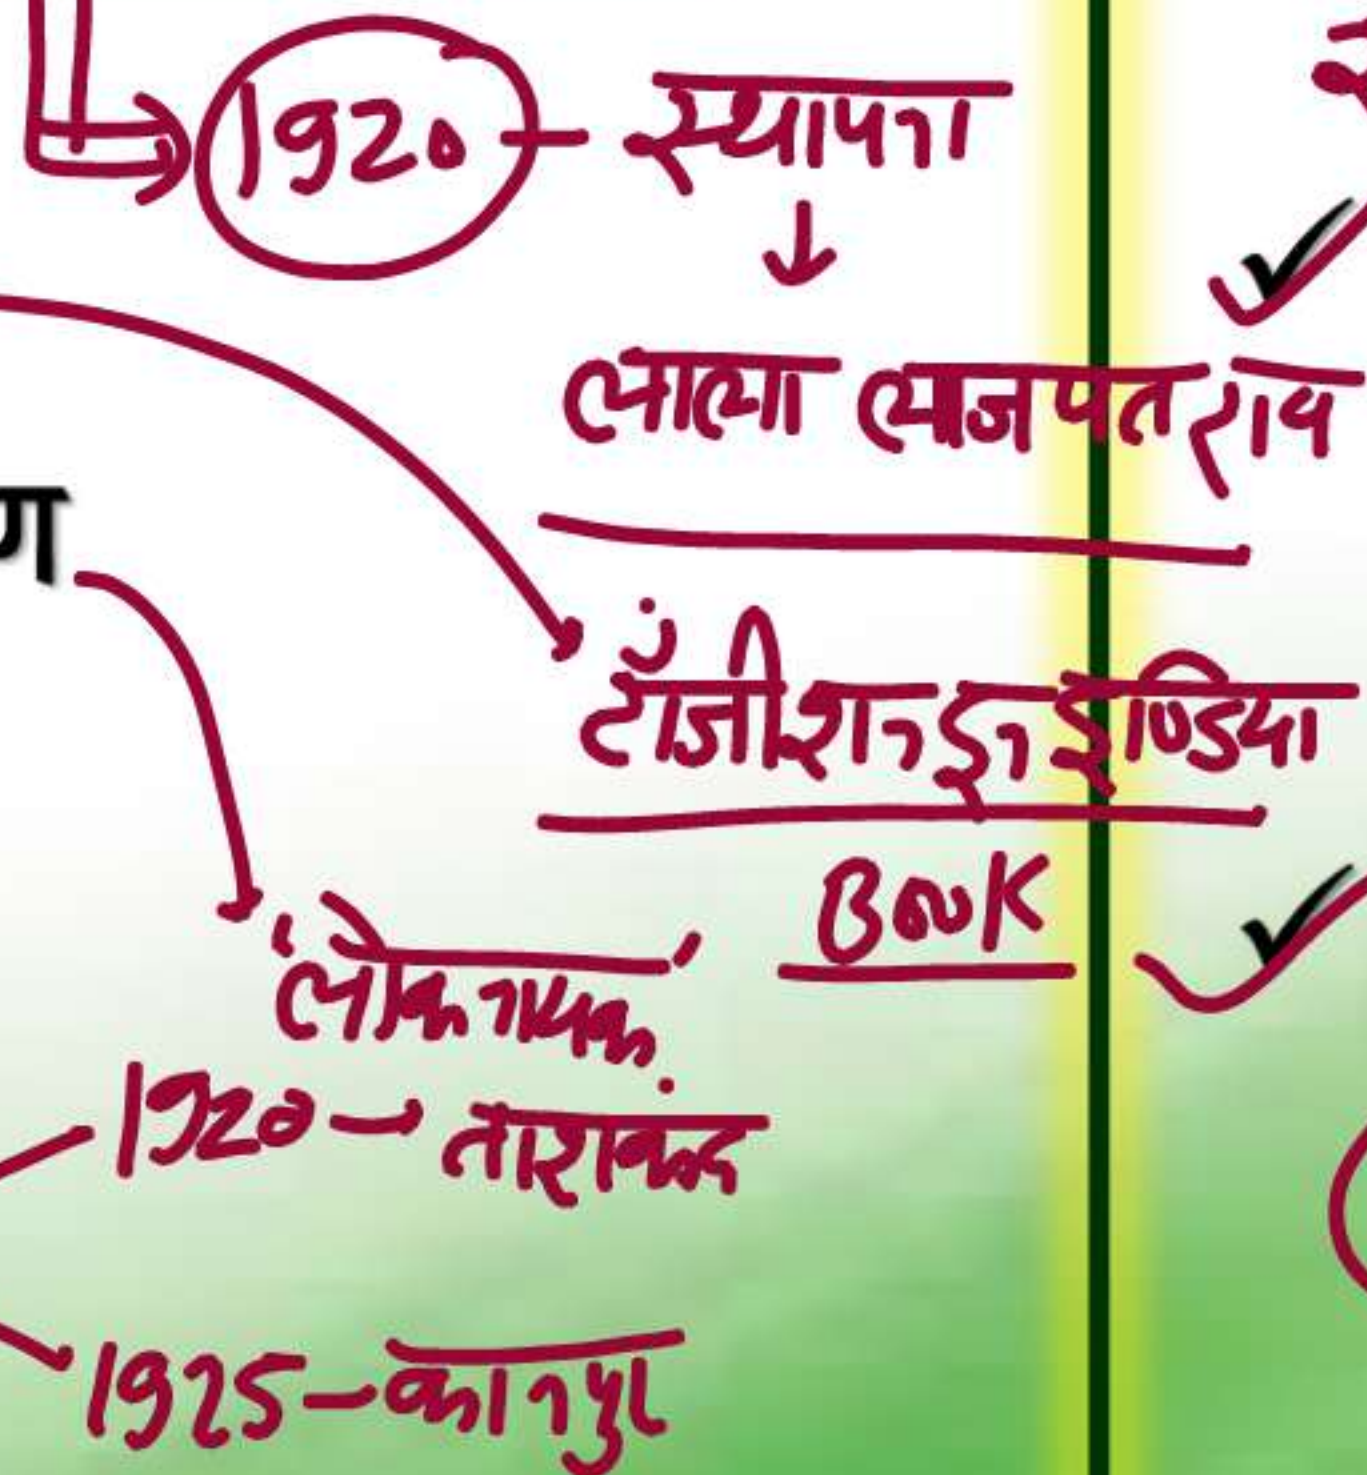 1920 - स्थापना
लाला लाजपत राय
ण
ट्रॉंजीशन इन इण्डिया
Book
'लोकनायक'
1920 - ताशकंद
1925 - कानपुर